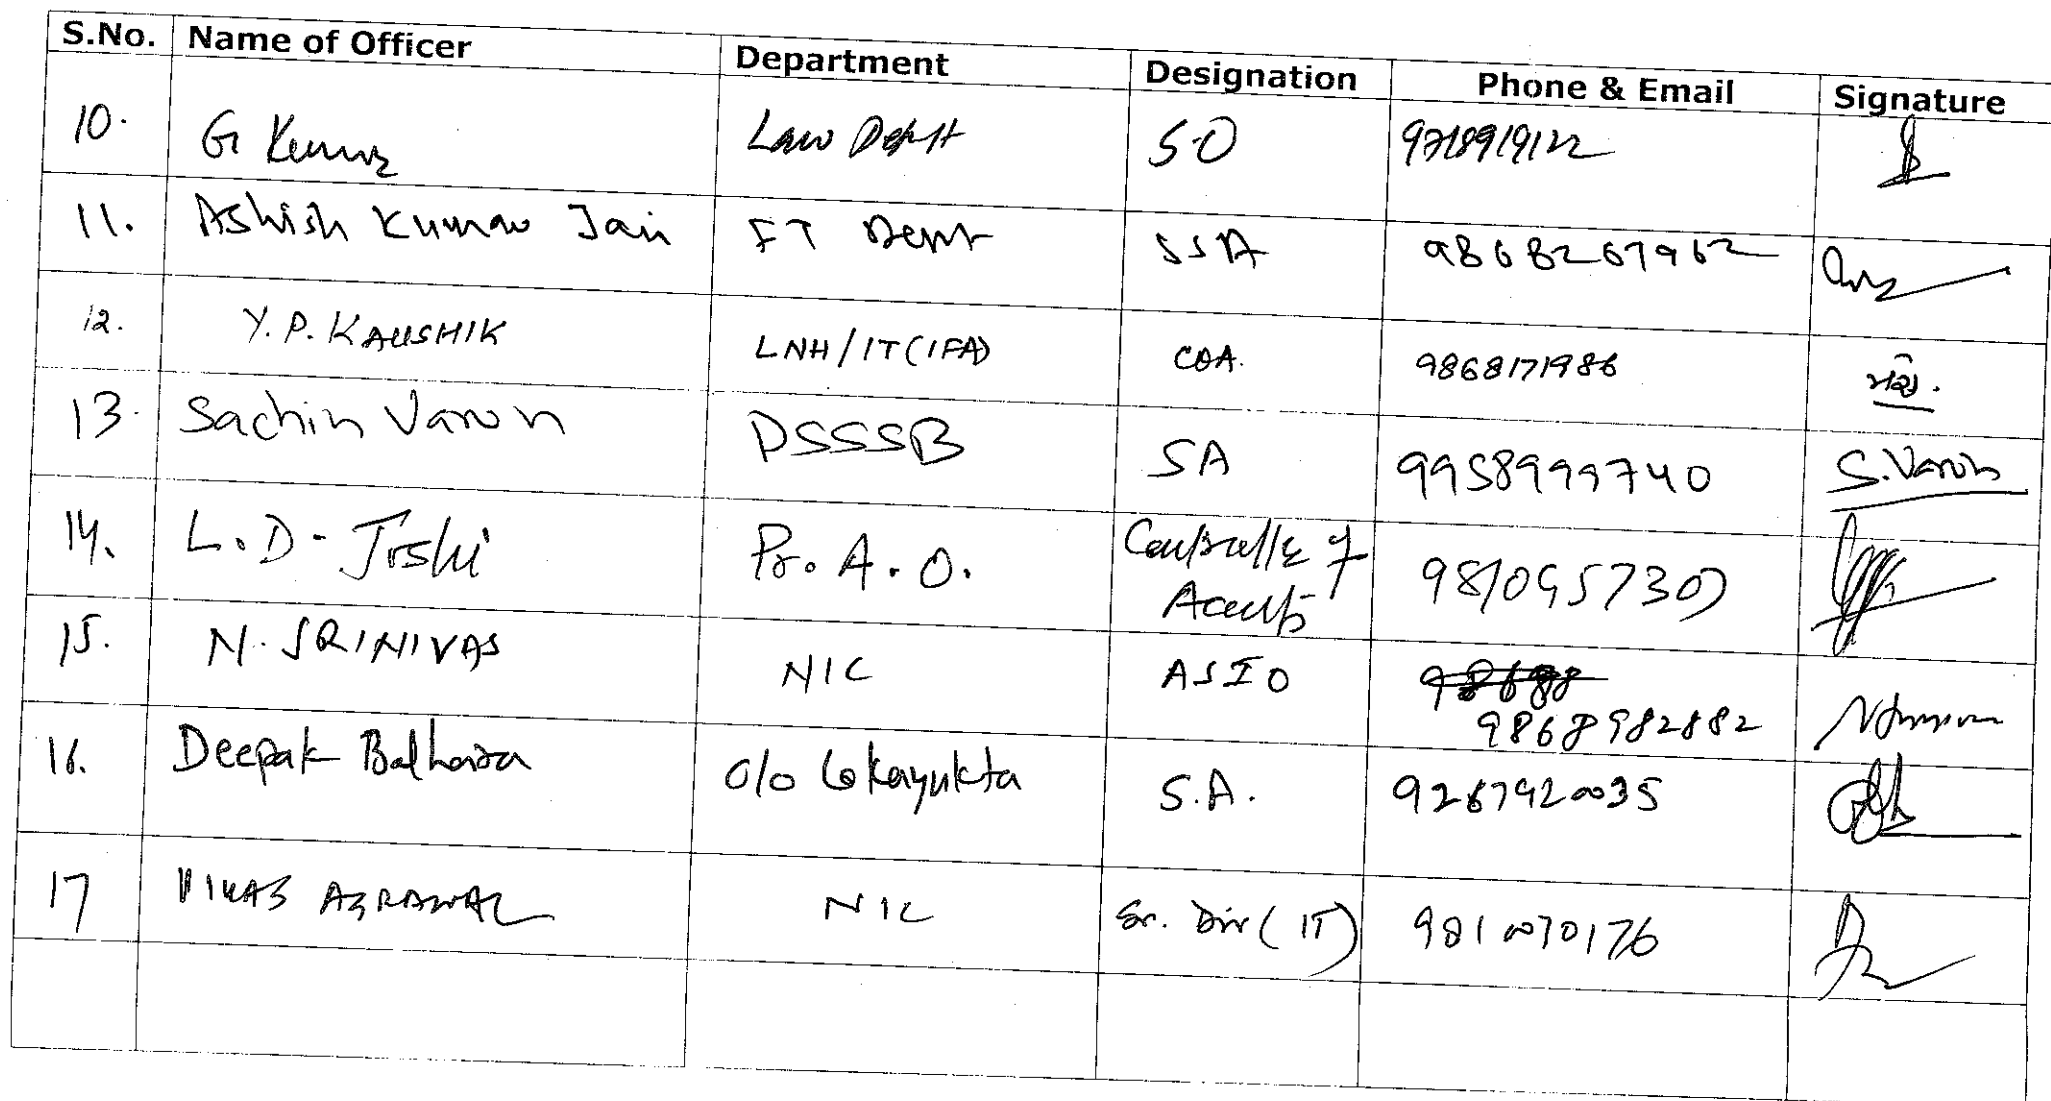 S.No. Name of Officer Department Designation Phone & Email Signature
10. G Kumar Law Deptt S.O 9718919122
11. Ashish Kumar Jain IT Deptt SSA 9868267962
12. Y.P. KAUSHIK LNH/IT(IFA) COA. 9868171986
13. Sachin Varun DSSSB SA 9958999740 S.Varun
14. L.D. Joshi Pr. A.O. Controller of
Accounts
15. N. SRINIVAS NIC ASIO
9868982882
16. Deepak Balhara O/o Lokayukta S.A. 9267920035
17 VIKAS AGRAWAL NIC Sr. Dir (IT) 9810070176